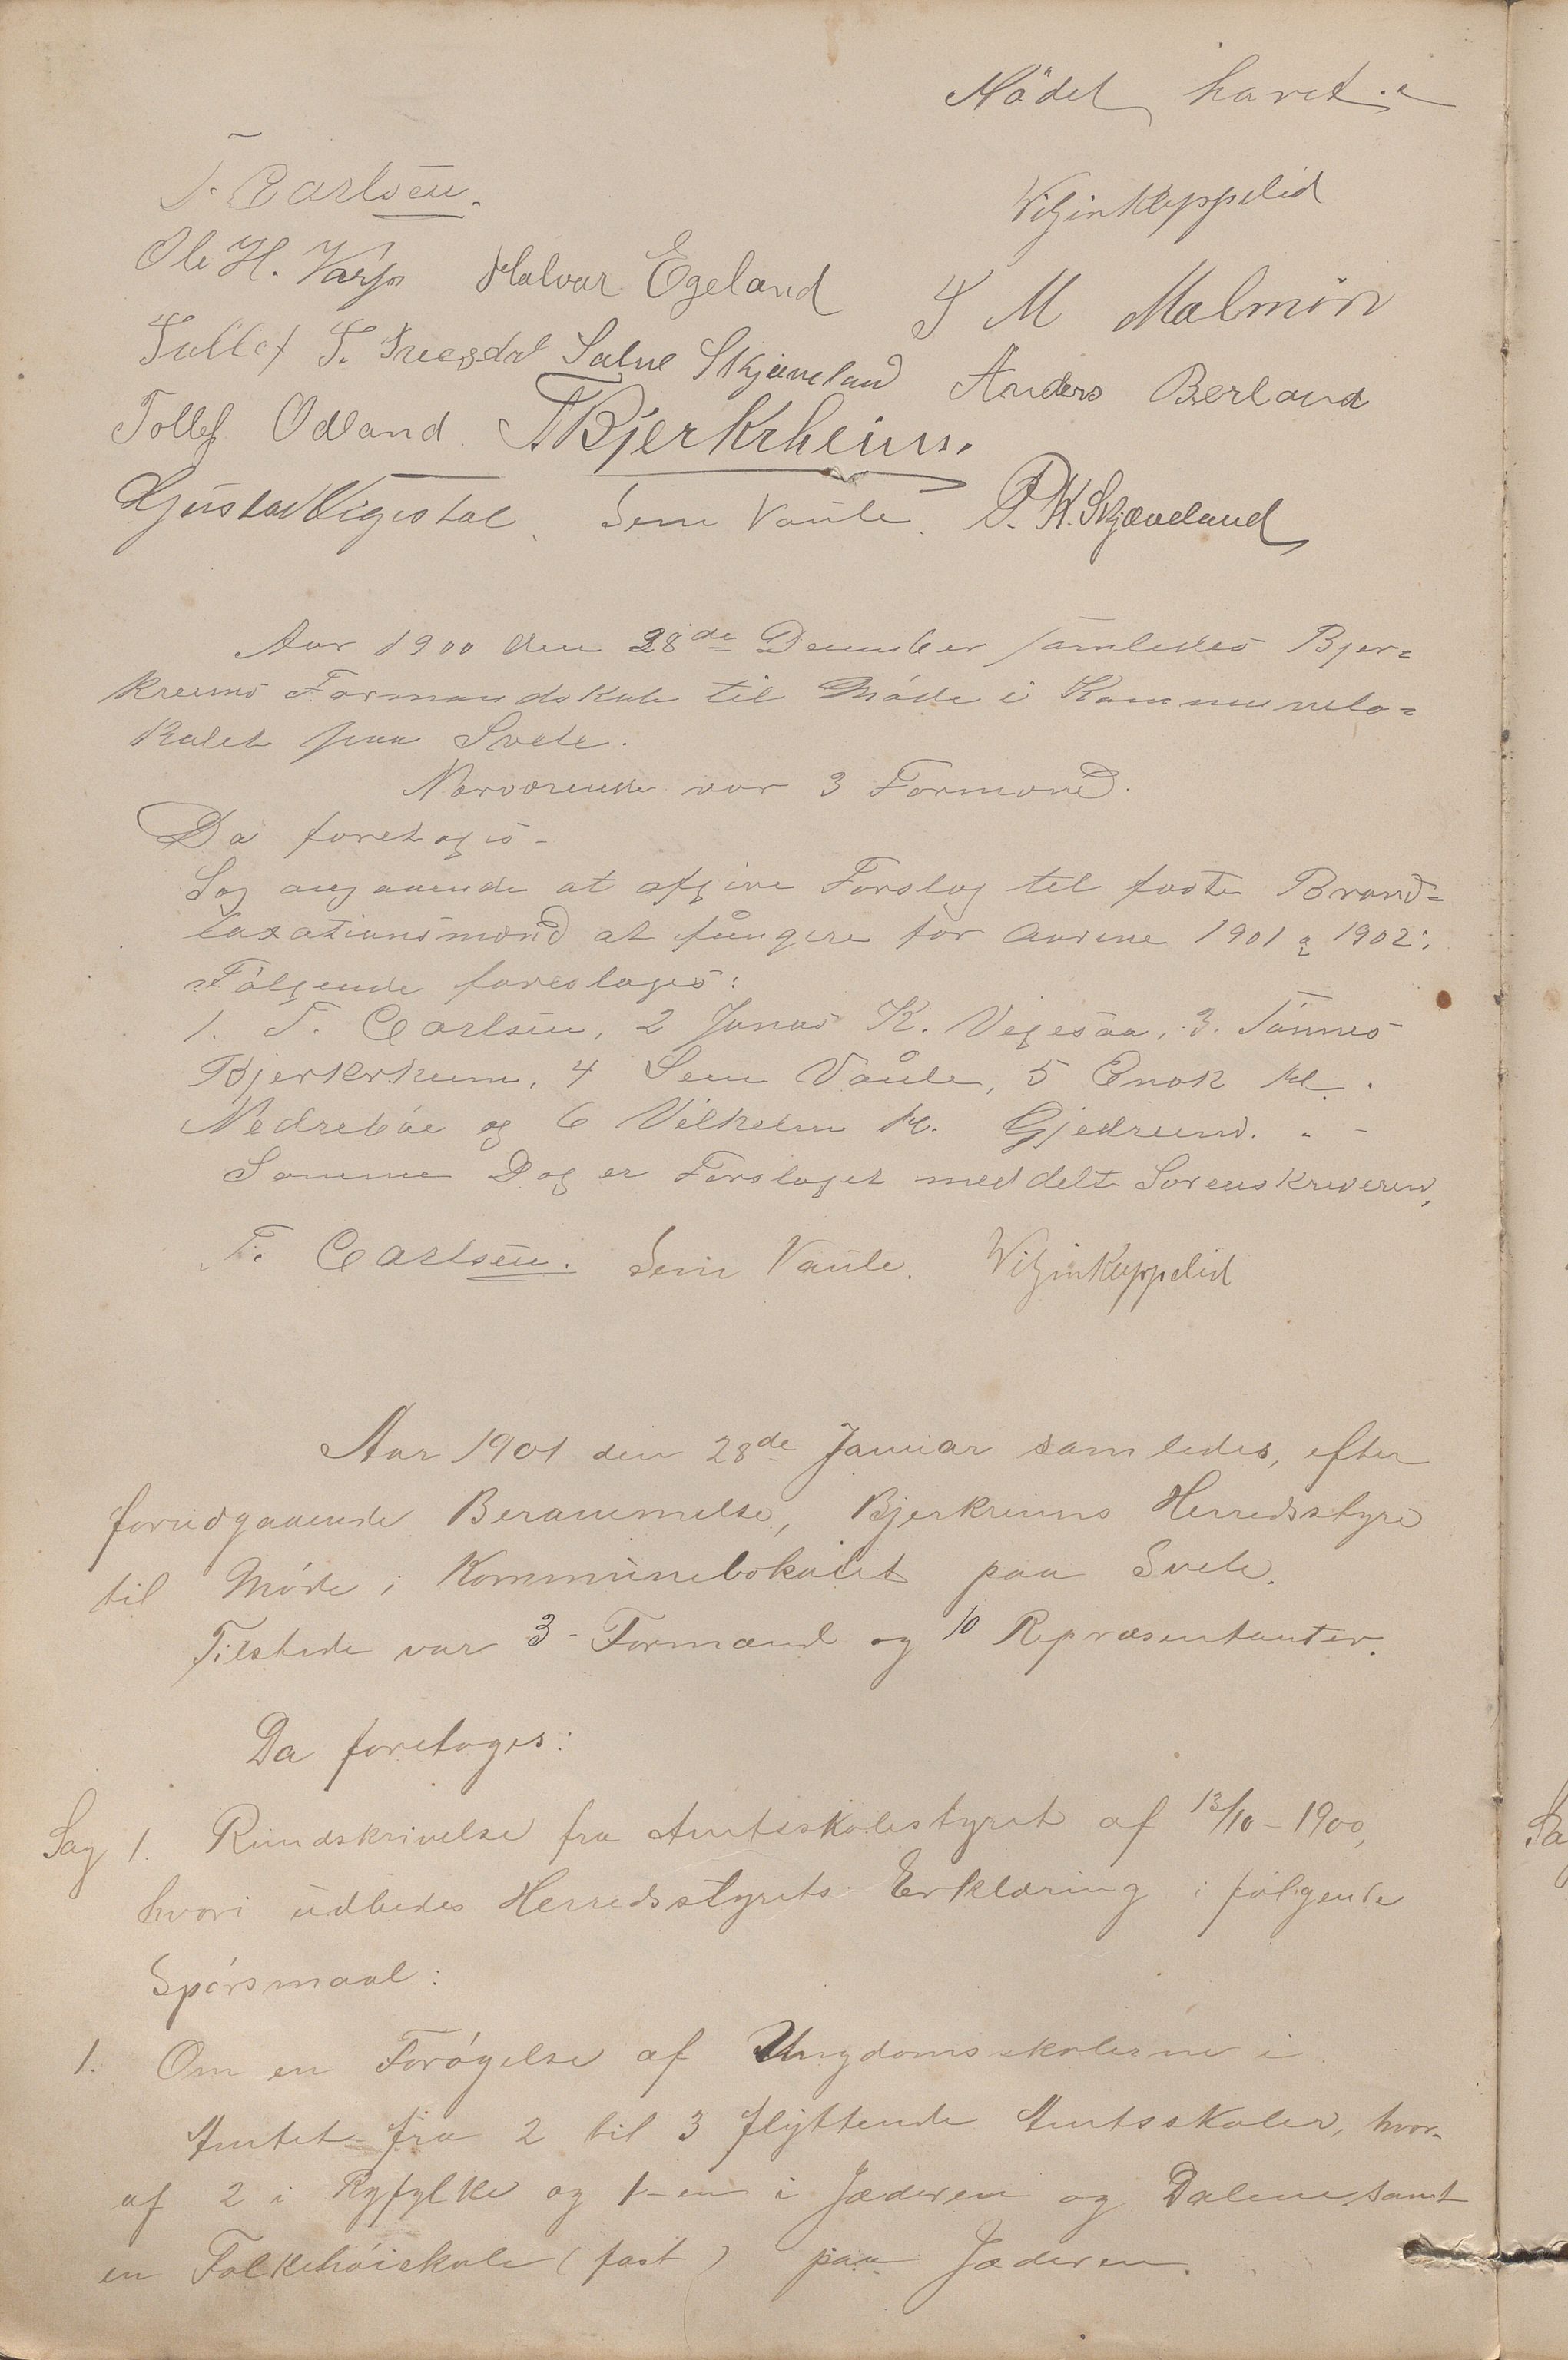 Mödet hævet.
T. Carlsen.
Vilhin Kløppelid
Ole H. Varp Halvar Egeland T M Malmin
Tollef T. Tregsdal Salve Skjæveland Anders Berland
Tollef Odland. T Bjerkrheim.
Gustav Vigestal. Sem Vaule. P. K. Skjæveland
Aar 1900 den 28de December samledes Bjer=
kreims Formandskab til Möde i Kommunelo=
kalet paa Svele.
Nærværende var 3 Formænd.
Da foretoges
Sag angaaende at afgive Forslag til faste Brand=
taxationsmænd at fungere for Aarene 1901 & 1902:
Fölgende foresloges:
1. T. Carlsen, 2 Jonas K. Vegesaa, 3. Tönnes
Bjerkrheim, 4 Sem Vaule, 5 Enok
Nedreböe og 6 Vilhelm Gjedreim.
Samme Dag er Forslaget meddelt Sorenskriveren.
T. Carlsen. Sem Vaule. Vilhin Kløppelid
Aar 1901 den 28de Januar samledes, efter
forudgaaende Berammelse, Bjerkreims Herredsstyre
til Møde i Kommunelokalet paa Svele.
Tilstede var 3 Formænd og 10 Repræsentanter.
Da foretoges:
Sag 1. Rundskrivelse fra Amtsskolestyret af 13/10-1900,
hvori udbedes Herredsstyrets Erklæring i følgende
Spørsmaal:
1. Om en Forøgelse af Ungdomsskolerne i
Amtet fra 2 til 3 flyttende Amtsskoler, hvor-
af 2 i Ryfylke og 1-en i Jæderen og Dalene samt
en Folkehøiskole (fast) paa Jæderen.
Sa